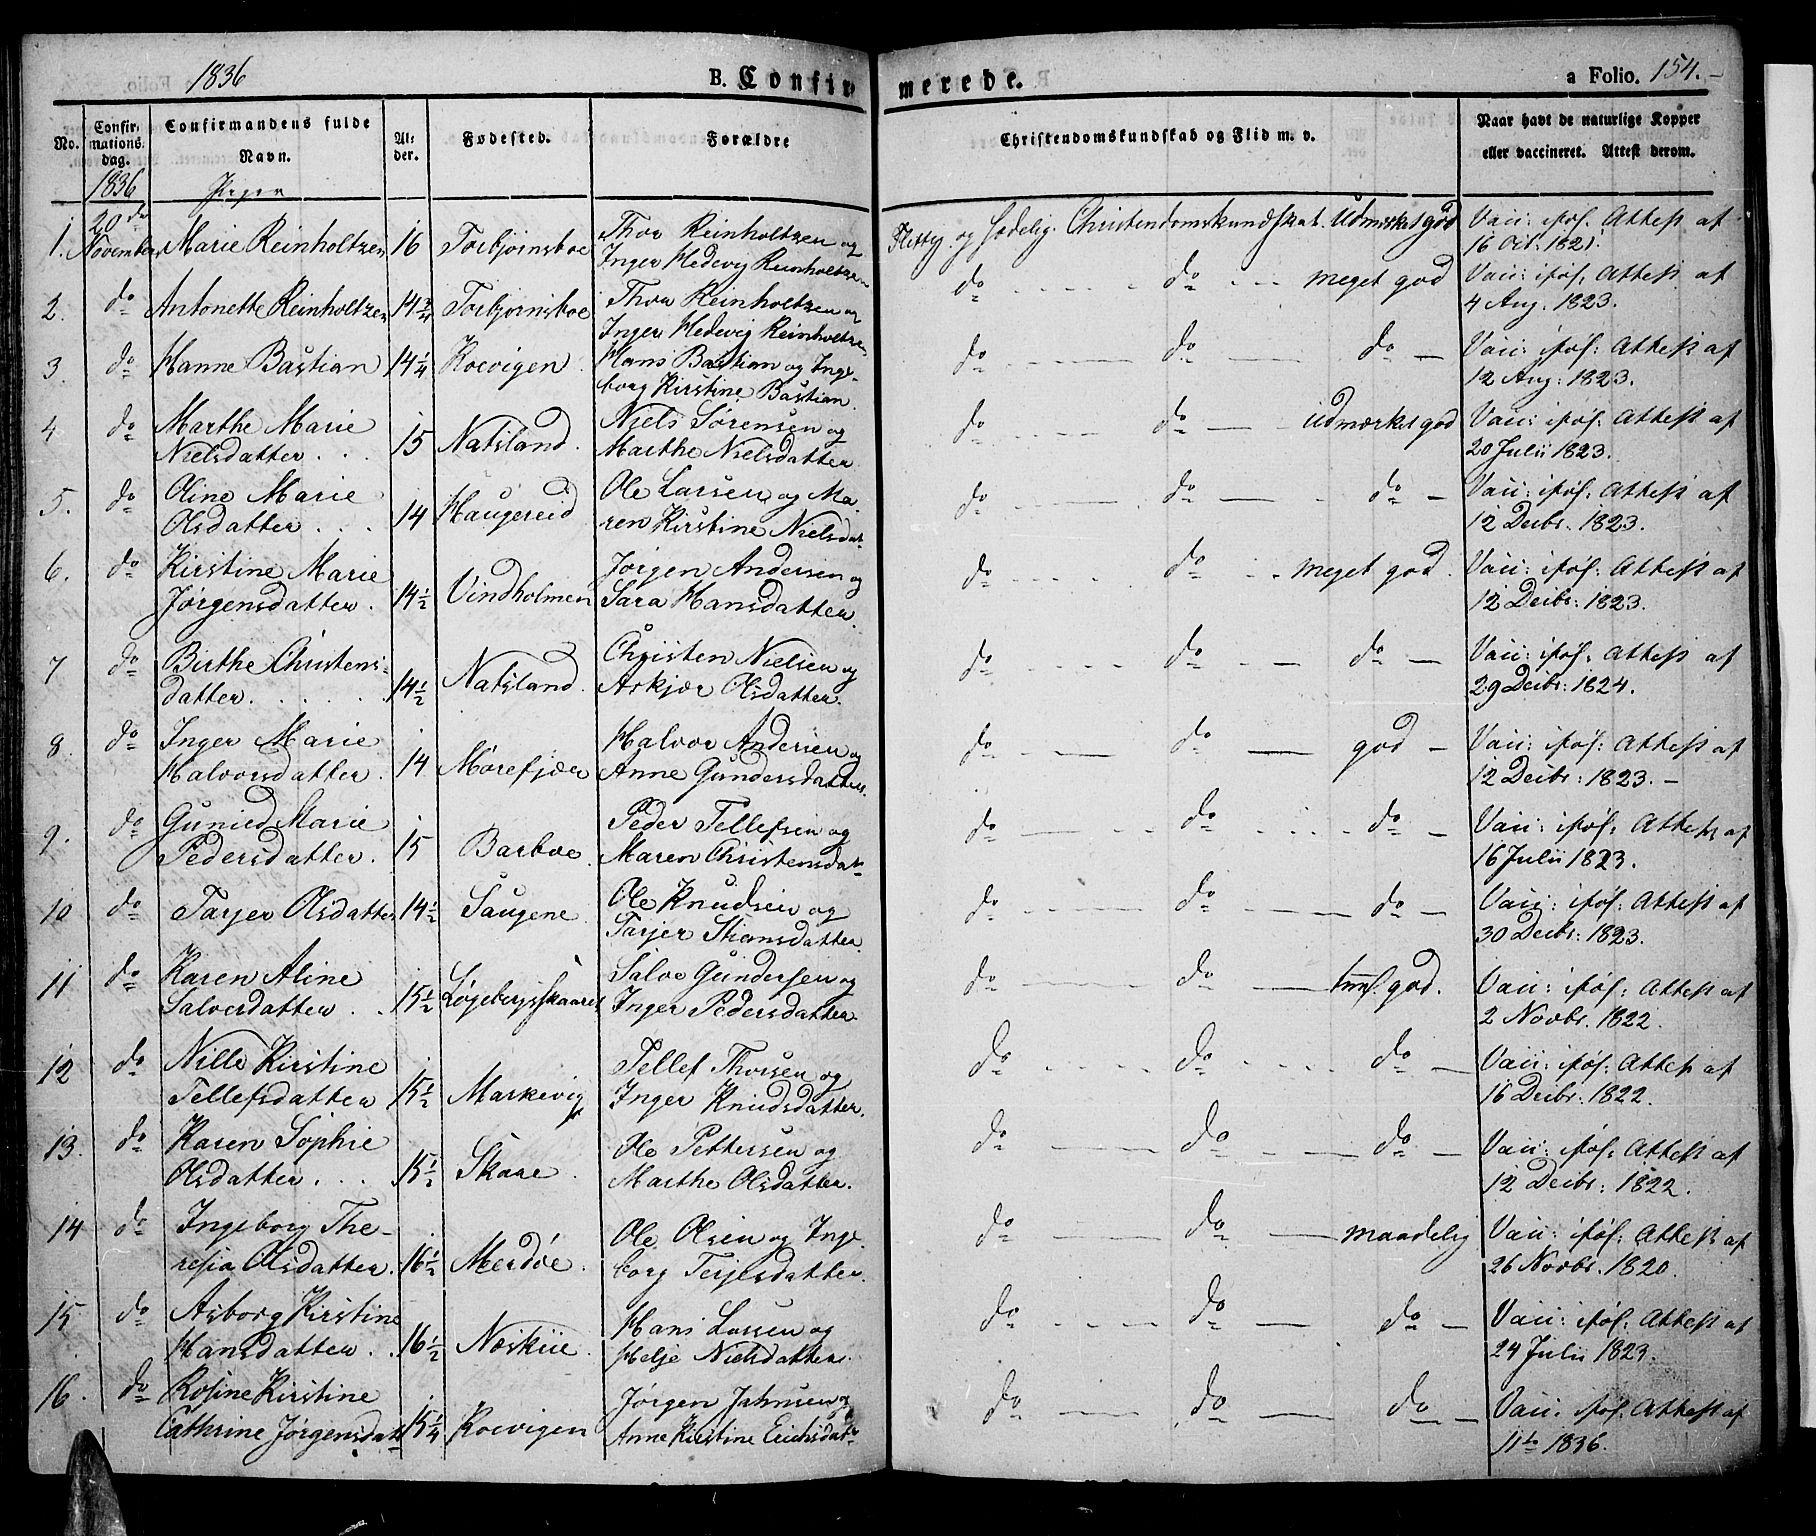 1836 B. Confir- merede. a Folio. 154.-
No. Confirmations. dag. Confirmandens fulde Navn. Alder. Fødested. Forældre Christendomskundskab og Flid m. v. Naar havt de naturlige Kopper eller vaccineret. Attest derom.
1836 Piger
1. 20de November Marie Reinholtzen 16 Torbjørnsboe Thor Reinholtzen og Flittig og Sædelig. Christendomskundskab. Udmærket god Vacc: iføl: Attest af
Inger Hedevig Reinholtzen 16 Oct. 1821.
2. do Antonette Reinholtzen 14 3/4 Torbjørnsboe Thor Reinholtzen og do do meget god Vacc: iføl: Attest af
Inger Hedevig Reinholtzen 4 Aug. 1823.
3. do Hanne Bastian 14 1/4 Roevigen Hans Bastian og Inge- do do do Vacc: iføl: Attest af
borg Kirstine Bastian. 12 Aug: 1823.
4 do Marthe Marie Niels Sørensen og do do udmærket god Vacc: iføl: Attest af
Nielsdatter . . . 15 Natsland. Marthe Nielsdatter 20 Julii 1823.
5. do Oline Marie Ole Larsen og Ma- do do do Vacc: iføl: Attest af
Olsdatter . . . 14 Haugereid ren Kirstine Nielsdat- 12 Decbr. 1823.
6. do Kirstine Marie Jørgen Andersen og do do meget god. Vacc: iføl: Attest af
Jørgensdatter. 14 1/2 Vindholmen Sara Hansdatter. 12 Decbr: 1823.
7 do Birthe Christens- Christen Nielsen og do do do Vacc: iføl: Attest af
datter. . . . . 14 1/2 Natsland. Askjær Olsdatter. 29 Decbr: 1824.
8. do Inger Marie Halvor Andersen og do do god Vacc: iføl: Attest af
Halvorsdatter. 14 Mørefjær Anne Gundersdatter. 12 Decbr: 1823.-
9. do Gunild Marie Peder Tellefsen og do do do Vacc: iføl: Attest af
Pedersdatter. 15 Barboe. Maren Christensdat- 16 Julii 1823.
10 do Tarjer Olsdatter 14 1/2 Saugene. Ole Knudsen og do do do Vacc: iføl: Attest af
Tarjer Stiansdatter. 30 Decbr: 1823.
11 do Karen Aline Salve Gundersen og do do god. Vacc: iføl: Attest af
Salvesdatter . . 15 1/2 Løgebergsskaaret Inger Pedersdatter. 2 Novbr. 1822.
12 do Nille Kirstine Tellef Thorsen og do do do Vacc: iføl: Attest af
Tellefsdatter 15 1/2 Markevig Inger Knudsdatter. 16 Decbr. 1822.
13. do Karen Sophie Ole Pettersen og do do do Vacc: iføl: Attest af
Olsdatter. . . 15 1/2 Skare. Marthe Olsdatter. 12 Decbr: 1822.
14 do Ingeborg The- Ole Olsen og Inge- do do maadelig Vacc: iføl: Attest af
resia Olsdatter. 16 1/2 Merdøe. borg Terjesdatter. 26 Novbr. 1820.
15 do Asborg Kirstine Hans Larsen og do do do Vacc: iføl: Attest af
Hansdatter . . 16 1/2 Næskiie. Helje Nielsdatter. 24 Julii 1823.
16. do Rosine Kirstine Jørgen Jahnsen og do do do Vacc: iføl: Attest af
Cathrine Jørgensdatt 15 1/4 Roevigen Anne Kirstine Erichsdat- 1836.